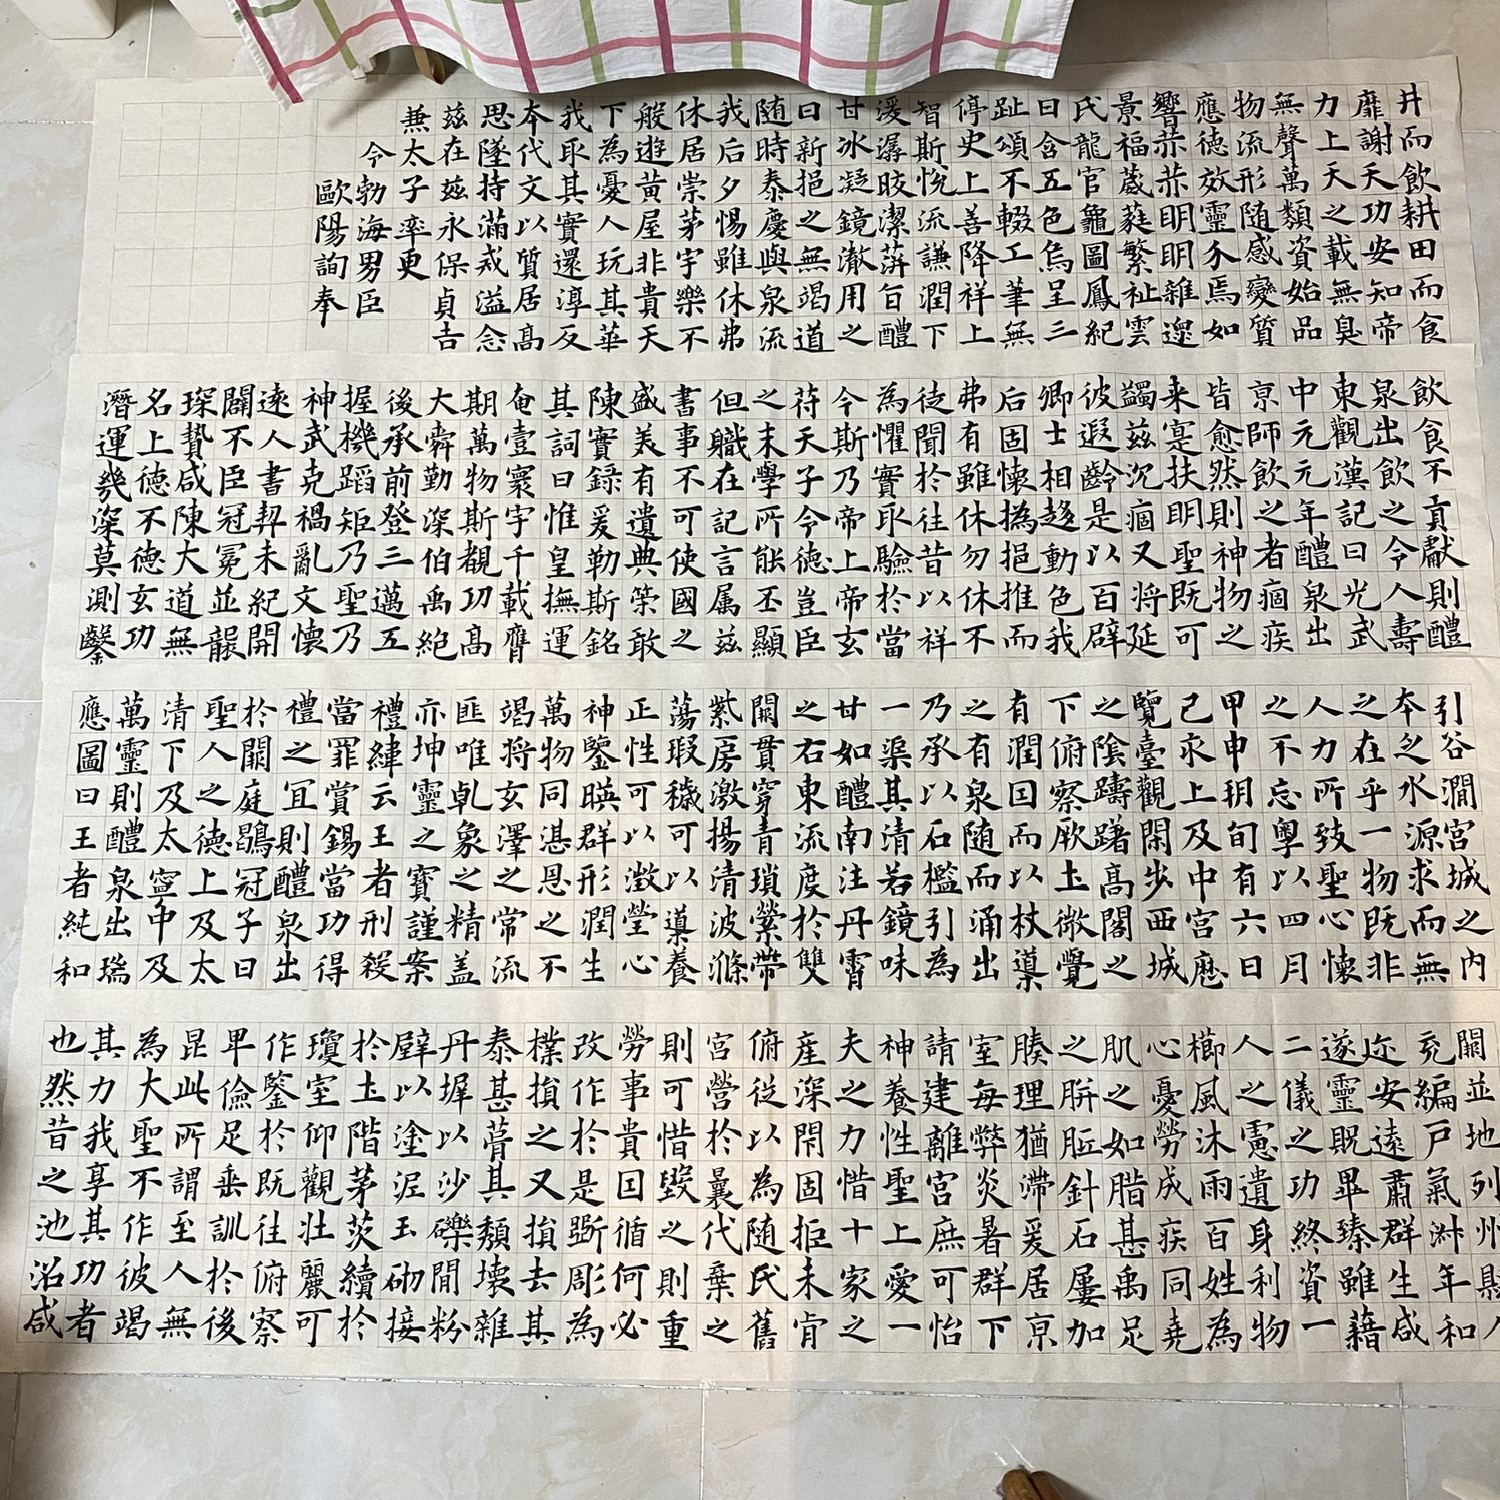 井而飲耕田而食
靡謝天功安知帝
力上天之載無臭
無聲萬類資始品
物流形随感變質
應德效靈介焉如
響赫赫明明雜遝
景福葳蕤繁祉雲
氏龍官龜圖鳳紀
日含五色烏呈三
趾頌不輟工筆無
停史上善降祥上
智斯悅流謙潤下
湲潺皎潔蓱旨醴
甘冰凝鏡澈用之
日新挹之無竭道
随時泰慶與泉流
我后夕惕雖休弗
休居崇茅宇樂不
般遊黃屋非貴天
下為憂人玩其華
我取其實還淳反
本代文以質居高
思墜持滿戒溢念
茲在茲永保貞吉
兼太子率更
令勃海男臣
歐陽詢奉
飲食不貢獻則醴
泉出飲之令人壽
東觀漢記曰光武
中元元年醴泉出
京師飲之者痼疾
皆愈然則神物之
来寔扶明聖既可
蠲茲沉痼又將延
彼遐齡是以百辟
卿士相趍動色我
后固懷撝挹推而
弗有雖休勿休不
徒聞於往昔以祥
為懼實取驗於當
今斯乃帝上帝玄
苻天子令德豈臣
之末學所能丕顯
但職在記言属茲
書事不可使國之
盛美有遺典策敢
陳實錄爰勒斯銘
其詞曰惟皇撫運
奄壹寰宇千載膺
期萬物斯覩功高
大舜勤深伯禹絕
後承前登三邁五
握機蹈矩乃聖乃
神武克禍亂文懷
遠人書契未紀開
闢不臣冠冕並襲
琛贄咸陳大道無
名上德不德玄功
潛運幾深莫測鑿
引谷澗宮城之內
本乏水源求而無
之在乎一物既非
人力所致聖心懷
之不忘粤以四月
甲申朔旬有六日
己亥上及中宮歷
覽臺觀閑步西城
之陰躊躇高閣之
下俯察厥土微覺
有潤因而以杖導
之有泉随而涌出
乃承以石檻引為
一渠其清若鏡味
甘如醴南注丹霄
之右東流度於雙
闕貫穿青瑣縈帶
紫房激揚清波滌
蕩瑕穢可以導養
正性可以澂瑩心
神鑒暎群形潤生
萬物同湛恩之不
竭將玄澤之常流
匪唯乹象之精盖
亦坤靈之寶謹案
禮緯云王者刑殺
當罪賞錫當功得
禮之宜則醴泉出
於闕庭鶡冠子曰
聖人之德上及太
清下及太寧中及
萬靈則醴泉出瑞
應圖曰王者純和
關並地列州縣人
兖編戶氣淋年和
迩安遠肅群生咸
遂靈貺畢臻雖藉
二儀之功終資一
人之慮遺身利物
櫛風沐雨百姓為
心憂勞成疾同堯
肌之如腊甚禹足
之胼胝針石屡加
腠理猶滯爰居京
室每弊炎暑群下
請建離宮庶可怡
神養性聖上愛一
夫之力惜十家之
產深閇固拒未肯
俯從以為随氏舊
宮營於曩代棄之
則可惜毀之則重
勞事貴因循何必
改作於是斲彫為
樸損之又損去其
泰甚葺其頹壞雜
丹墀以沙礫間粉
壁以塗泥玉砌接
於土階茅茨續於
瓊室仰觀壯麗可
作鑒於既往俯察
卑儉足垂訓於後
昆此所謂至人無
為大聖不作彼竭
其力我享其功者
也然昔之池沼咸